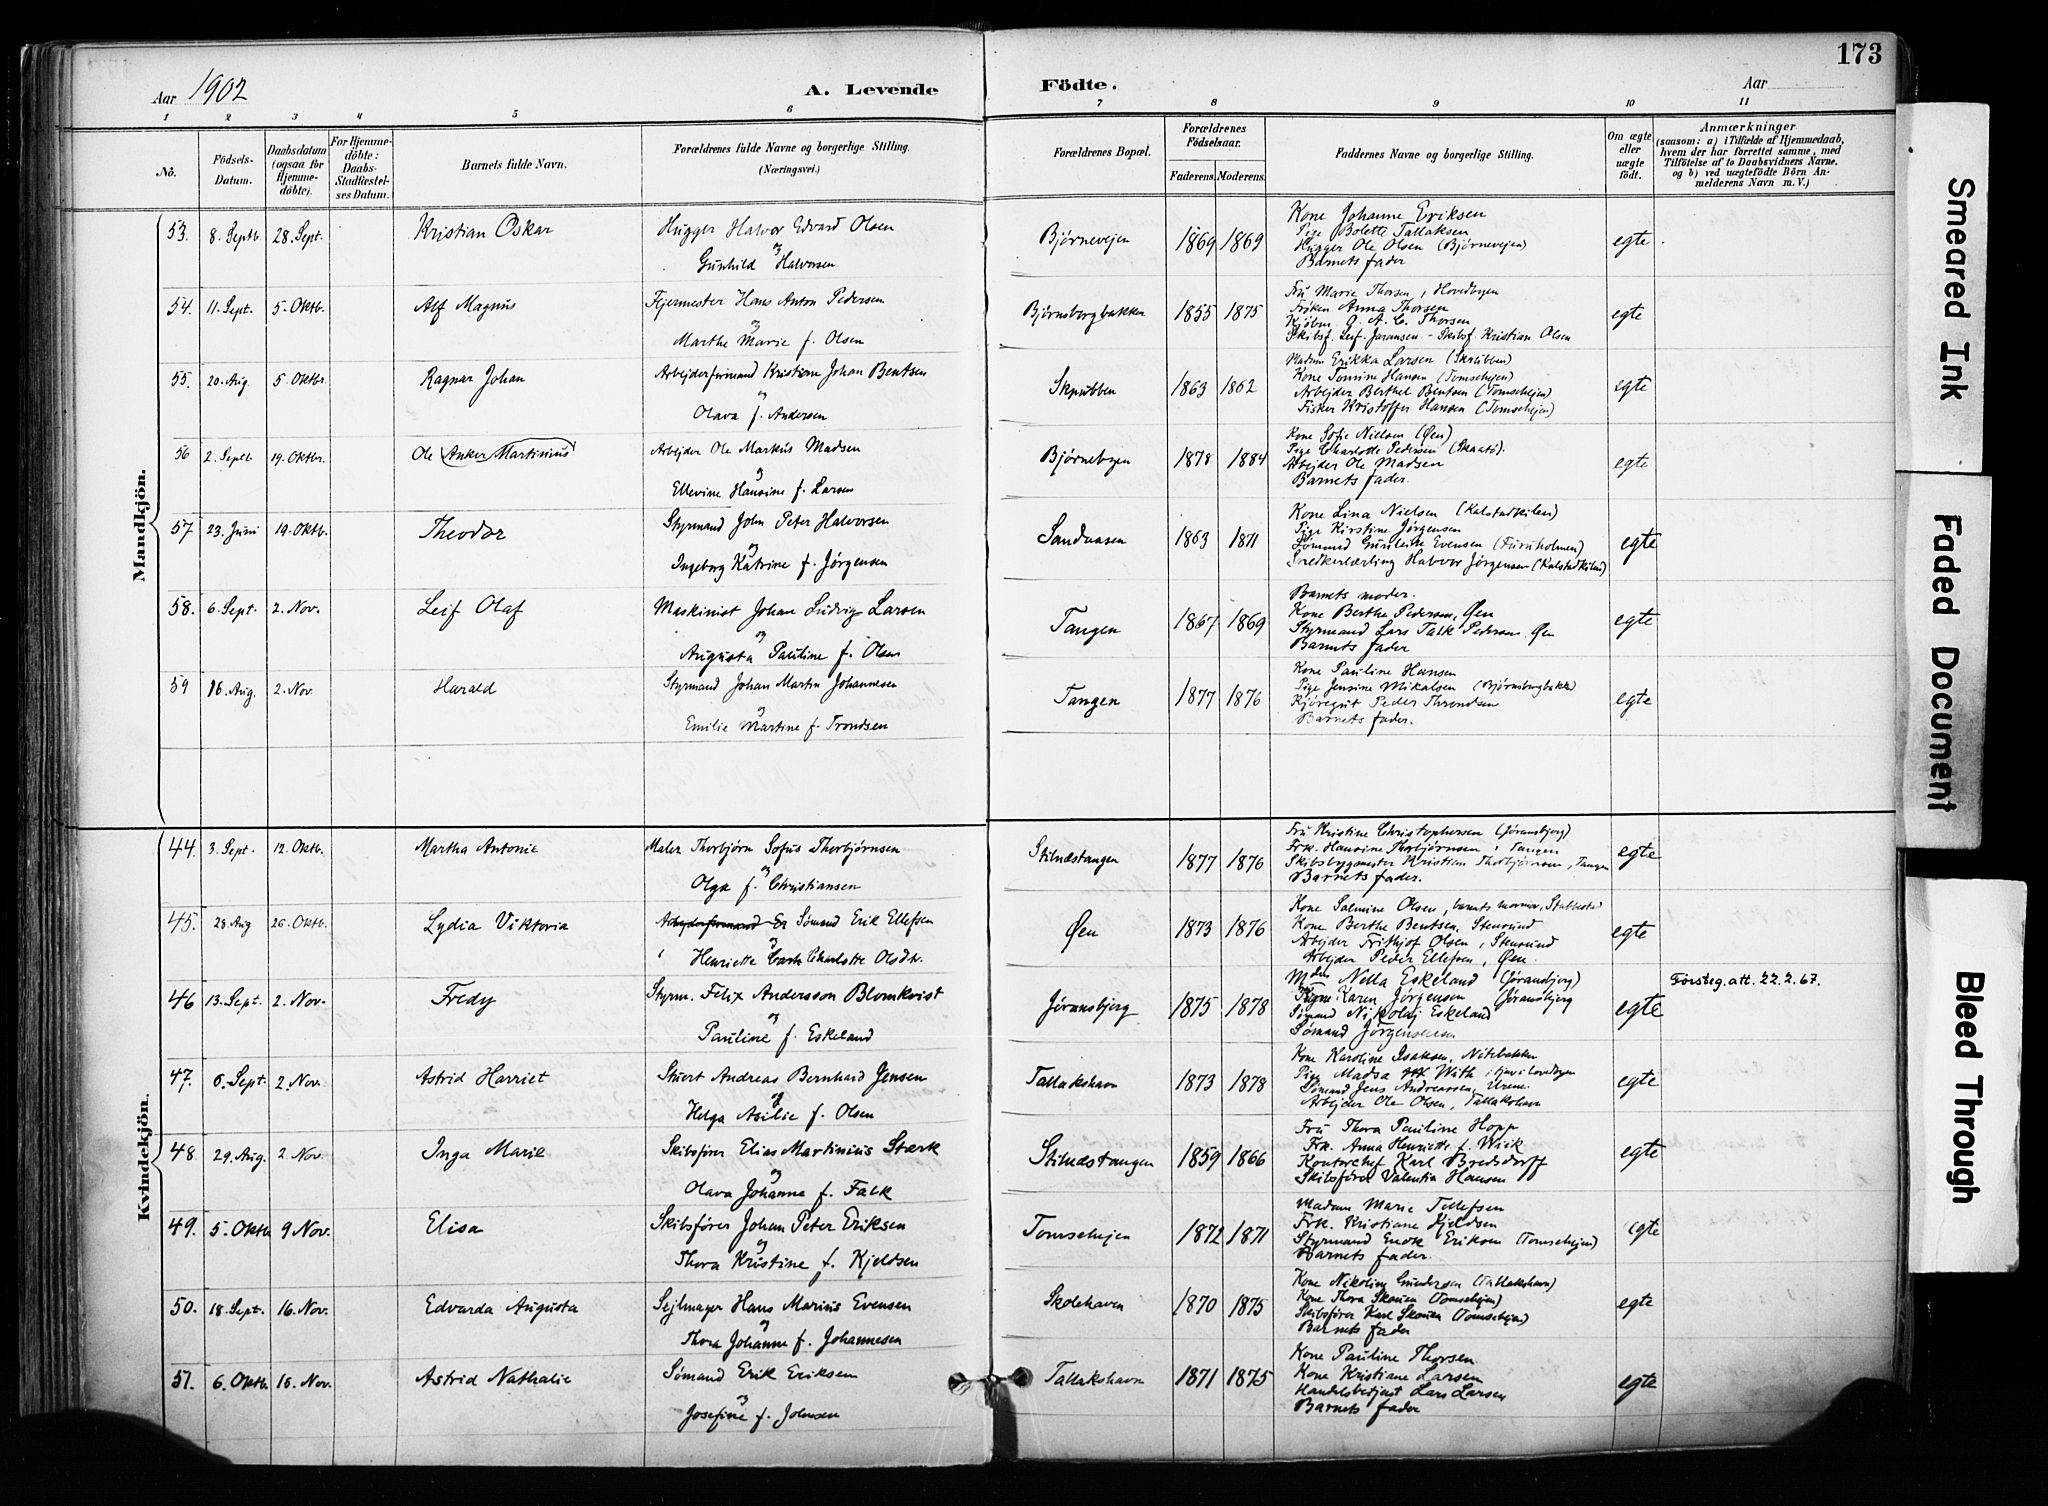 173
Aar 1902
A. Levende Födte.
Aar
1 2 3 4 5 6 7 8 9 10 11
No.
Födsels-Datum.
Daabsdatum (ogsaa for Hjemmedöbte).
For Hjemmedöbte: Daabs-Stadfæstelses Datum.
Barnets fulde Navn.
Forældrenes fulde Navne og borgerlige Stilling.
(Næringsvei.)
Forældrenes Bopæl.
Forældrenes Födselsaar.
Faderens. Moderens.
Faddernes Navne og borgerlige Stilling.
Om ægte eller uægte födt.
Anmærkninger
(saasom: a) i Tilfælde af Hjemmedaab, hvem der har forrettet samme, med Tilföielse af to Daabsvidners Navne, og b) ved uægtefödte Börn Anmelderens Navn m. V.)
Mandkjön.
53. 8. Septb. 28. Sept. Kristian Oskar Hugger Halvor Edvard Olsen
og
Gunhild Halvorsen
Bjørnevejen 1869 1869
Kone Johanne Eriksen
Pige Bolette Tallaksen
Hugger Ole Olsen (Bjørnevejen)
Barnets fader
egte.
54. 11. Sept. 5. Oktb. Alf Magnus Fejermester Hans Anton Pedersen
og
Marthe Marie f. Olsen
Bjørnsborgbakken 1855 1875
Fru Marie Thorsen, Hovedbyen
Frøken Anna Thorsen
Kjøbm. G. A. C. Thorsen
Skibsf. Leif Jøransen - Skibsf. Kristian Olsen
egte
55. 20. Aug. 5. Oktbr. Ragnar Johan Arbejderformand Kristian Johan Bentsen
og
Olava f. Andersen
Skrubben 1863 1862
Madam Erikka Larsen (Skrubben)
Kone Tomine Hansen (Tomsehejen)
Arbejder Berthel Bentsen (Tomsehejen)
Fisker Kristoffer Hansen (Tomsehejen)
egte
56 2. Septb 19. Oktbr. Ole Anker Martinius Arbejder Ole Markus Madsen
og
Ellevine Hansine f. Larsen
Bjørnebyen 1878 1884
Kone Sofie Nielsen (Øen)
Pige Charlotte Pedersen (Skaatø).
Arbejder Ole Madsen
Barnets fader.
egte
57 23. Juni 19. Oktb. Theodor Styrmand John Peter Halvorsen
og
Ingeborg Katrine f. Jørgensen
Sandaasen 1863 1871
Kone Lina Nielsen (Kalstadkilen)
Pige Kirstine Jørgensen
Sømand Gunleik Evensen (Furuholmen)
Snedkerlærling Halvor Jørgensen (Kalstadkilen)
egte
58. 6. Sept. 2. Nov. Leif Olaf Maskinist Johan Ludvig Larsen
og
Augusta Pauline f. Olsen
Tangen 1867 1869
Barnets moder.
Kone Berthe Pedersen, Øen
Styrmand Lars Falk Pedersen Øen
Barnets fader
egte
59 16. Aug. 2. Nov. Harald Styrmand Johan Martin Johannesen
og
Emilie Martine f. Trondsen
Tangen 1877 1876
Kone Pauline Hansen
Pige Jensine Mikalsen (Bjørnsborgbakke)
Kjøregut Peder Throndsen
Barnets fader.
egte
Kvindekjön.
44. 3. Sept. 12. Oktb. Martha Antonie Maler Thorbjørn Sofus Thorbjørnsen
og
Olga f. Christiansen
Stilnæstangen 1877 1876
Fru Kristine Christophersen (Jøransbjerg)
Frk. Hansine Thorbjørnsen, Tangen
Skibsbygmester Kristian Thorbjørnsen, Tangen
Barnets fader.
egte
45. 28. Aug 26. Oktb. Lydia Viktoria Arbejderformand Er Sømand Erik Ellefsen
og
Henriette Charlotte Olsdtr.
Øen 1873 1876
Kone Salmine Olsen, barnets mormor, Stabbestad
Kone Berthe Bentsen, Stensund
Arbejder Frithjof Olsen, Stensund
Arbejder Peder Ellefsen, Øen.
egte
46 13. Sept. 2. Nov. Fredy Styrm. Felix Andersson Blomkvist
og
Pauline f. Eskeland
Jøransbjerg 1875 1878
Mdm Nella Eskeland (Jøransbjerg)
Karen Jørgensen (Jøransbjerg
Sømand Nikolaj Eskeland
Sømand Jørgensen
egte
Førsteg. att. 22.2.67.
47. 6. Sept. 2. Nov. Astrid Harriet Stuert Andreas Bernhard Jensen
og
Helga Asilie f. Olsen
Tallakshavn 1873 1878
Kone Karoline Isaksen, Nitebakken
Pige Madsa With i Hovedbyen
Sømand Jens Andreassen, Urene
Arbejder Ole Olsen, Tallakshavn
egte
48. 29. Aug. 2. Nov. Inga Marie Skibsfører Elias Martinius Stærk
og
Olava Johanne f. Falk
Stilnæstangen 1859 1866
Fru Thora Pauline Hopp
Frk. Anna Henriette f. Wiik
Kontorchef Karl Bredsdorff
Skibsfører Valentin Hansen
egte
49. 5. Oktb 9 Nov. Elisa Skibsfører Johan Peter Eriksen
og
Thora Kristine f. Kjeldsen
Tomsehejen 1872 1871
Madam Marie Tellefsen
Frk. Kristiane Kjeldsen
Styrmand Endr. Eriksen (Tomsehejen)
Barnets fader.
egte
50. 18. Sept. 16. Nov. Edvarda Augusta Sejlmager Hans Marius Evensen
og
Thora Johanne f. Johannesen
Skolehaven 1870 1875
Kone Nikoline Gundersen (Tallakshavn)
Kone Thora Skouen (Tomsehejen)
Skibsfører Karl Skouen (Tomsehejen)
Barnets fader
egte
51. 6. Oktb. 16. Nov. Astrid Nathalie Sømand Erik Eriksen
og
Josefine f. Johnsen
Tallakshavn 1871 1875
Kone Pauline Thorsen
Kone Kristiane Larsen
Handelsbetjent Lars Larsen
Barnets fader
egte
Smeared Ink
Faded Document
Bleed Through